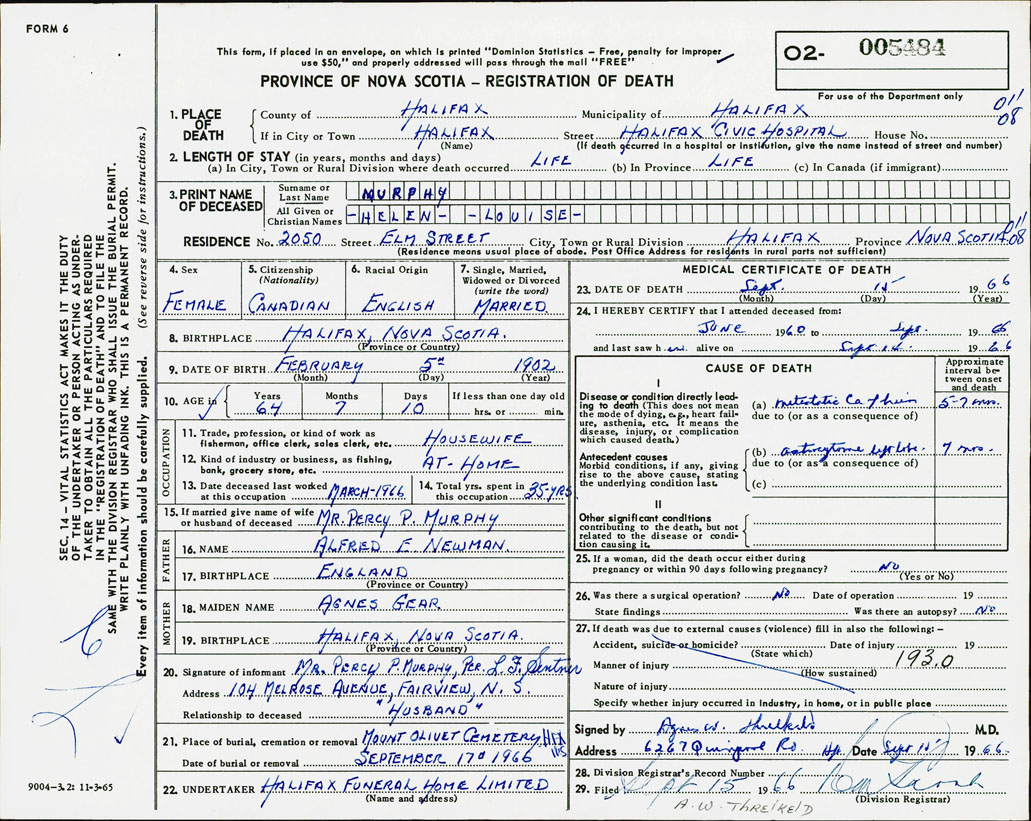 FORM 6
This form, if placed in an envelope, on which is printed "Dominion Statistics – Free, penalty for improper
use $50," and properly addressed will pass through the mail "FREE"
PROVINCE OF NOVA SCOTIA – REGISTRATION OF DEATH
02- 005484
For use of the Department only
011
08
1. PLACE OF DEATH
County of HALIFAX Municipality of HALIFAX
If in City or Town HALIFAX Street HALIFAX CIVIC HOSPITAL House No.
(Name) (If death occurred in a hospital or institution, give the name instead of street and number)
2. LENGTH OF STAY (in years, months and days)
(a) In City, Town or Rural Division where death occurred LIFE (b) In Province LIFE (c) In Canada (if immigrant)
3. PRINT NAME OF DECEASED
Surname or Last Name MURPHY
All Given or Christian Names -HELEN- -LOUISE-
RESIDENCE No. 2050 Street ELM STREET City, Town or Rural Division HALIFAX Province NOVA SCOTIA 08
(Residence means usual place of abode. Post Office Address for residents in rural parts not sufficient)
4. Sex
FEMALE
5. Citizenship
(Nationality)
CANADIAN
6. Racial Origin
ENGLISH
7. Single, Married,
Widowed or Divorced
(write the word)
MARRIED.
8. BIRTHPLACE HALIFAX, NOVA SCOTIA.
(Province or Country)
9. DATE OF BIRTH FEBRUARY 5th 1902
(Month) (Day) (Year)
10. AGE in Years Months Days If less than one day old
64 7 10 hrs. or min.
OCCUPATION
11. Trade, profession, or kind of work as
fisherman, office clerk, sales clerk, etc. HOUSEWIFE
12. Kind of industry or business, as fishing,
bank, grocery store, etc. AT-HOME
13. Date deceased last worked
at this occupation MARCH-1966
14. Total yrs. spent in
this occupation 35-YRS
15. If married give name of wife
or husband of deceased MR. PERCY P. MURPHY
FATHER
16. NAME ALFRED E. NEWMAN.
17. BIRTHPLACE ENGLAND
(Province or Country)
MOTHER
18. MAIDEN NAME AGNES GEAR.
19. BIRTHPLACE HALIFAX, NOVA SCOTIA.
(Province or Country)
20. Signature of informant MR. PERCY P. MURPHY, PER. L. F. Sentner
Address 104 MELROSE AVENUE, FAIRVIEW, N. S.
Relationship to deceased "HUSBAND"
21. Place of burial, cremation or removal MOUNT OLIVET CEMETERY, HFX NS
Date of burial or removal SEPTEMBER 17th 1966
22. UNDERTAKER HALIFAX FUNERAL HOME LIMITED
(Name and address)
MEDICAL CERTIFICATE OF DEATH
23. DATE OF DEATH Sept. 15 1966
(Month) (Day) (Year)
24. I HEREBY CERTIFY that I attended deceased from:
JUNE 1960 to Sept. 1966
and last saw her alive on Sept 14. 1966
CAUSE OF DEATH
Approximate
interval be-
tween onset
and death
I
Disease or condition directly lead-
ing to death (This does not mean
the mode of dying, e.g., heart fail-
ure, asthenia, etc. It means the
disease, injury, or complication
which caused death.)
(a) 5-7 mos.
due to (or as a consequence of)
Antecedent causes
Morbid conditions, if any, giving
rise to the above cause, stating
the underlying condition last.
(b) 7 mos.
due to (or as a consequence of)
(c)
II
Other significant conditions
contributing to the death, but not
related to the disease or condi-
tion causing it.
25. If a woman, did the death occur either during
pregnancy or within 90 days following pregnancy? NO
(Yes or No)
26. Was there a surgical operation? NO Date of operation 19
State findings Was there an autopsy? NO
27. If death was due to external causes (violence) fill in also the following: –
Accident, suicide or homicide? Date of injury 19
(State which)
Manner of injury 193.0
(How sustained)
Nature of injury
Specify whether injury occurred in Industry, in home, or in public place
Signed by Agnes W. M.D.
Address 6267 Quinpool Rd. Hfx. Date Sept 15 1966.
28. Division Registrar's Record Number
29. Filed Sept 15 1966
(Division Registrar)
A. W. THREIKELD
SEC. 14 – VITAL STATISTICS ACT MAKES IT THE DUTY
OF THE UNDERTAKER OR PERSON ACTING AS UNDER-
TAKER TO OBTAIN ALL THE PARTICULARS REQUIRED
IN THE "REGISTRATION OF DEATH" AND TO FILE THE
SAME WITH THE DIVISION REGISTRAR WHO SHALL ISSUE THE BURIAL PERMIT.
WRITE PLAINLY WITH UNFADING INK. THIS IS A PERMANENT RECORD.
Every item of information should be carefully supplied. (See reverse side for instructions.)
9004-3.2: 11-3-65